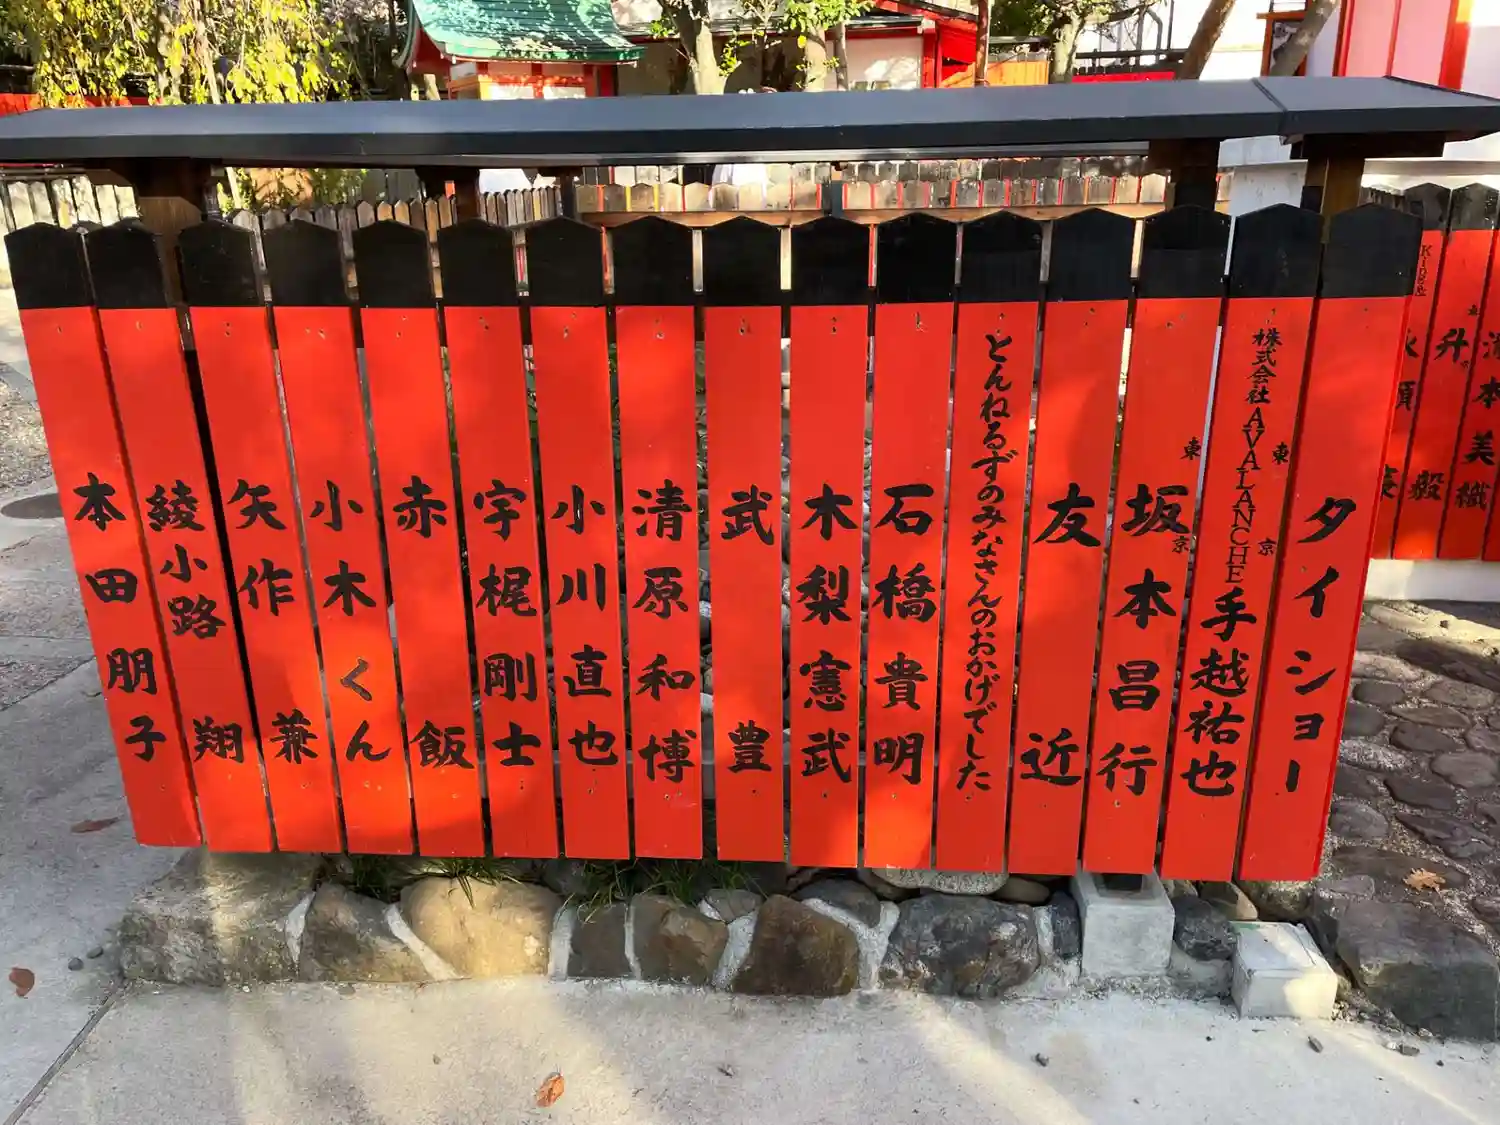 本美織
升毅
タイショー
東京
株式会社AVALANCHE
手越祐也
東京
坂本昌行
友近
とんねるずのみなさんのおかげでした
石橋貴明
木梨憲武
武豊
清原和博
小川直也
宇梶剛士
赤飯
小木くん
矢作兼
綾小路翔
本田朋子